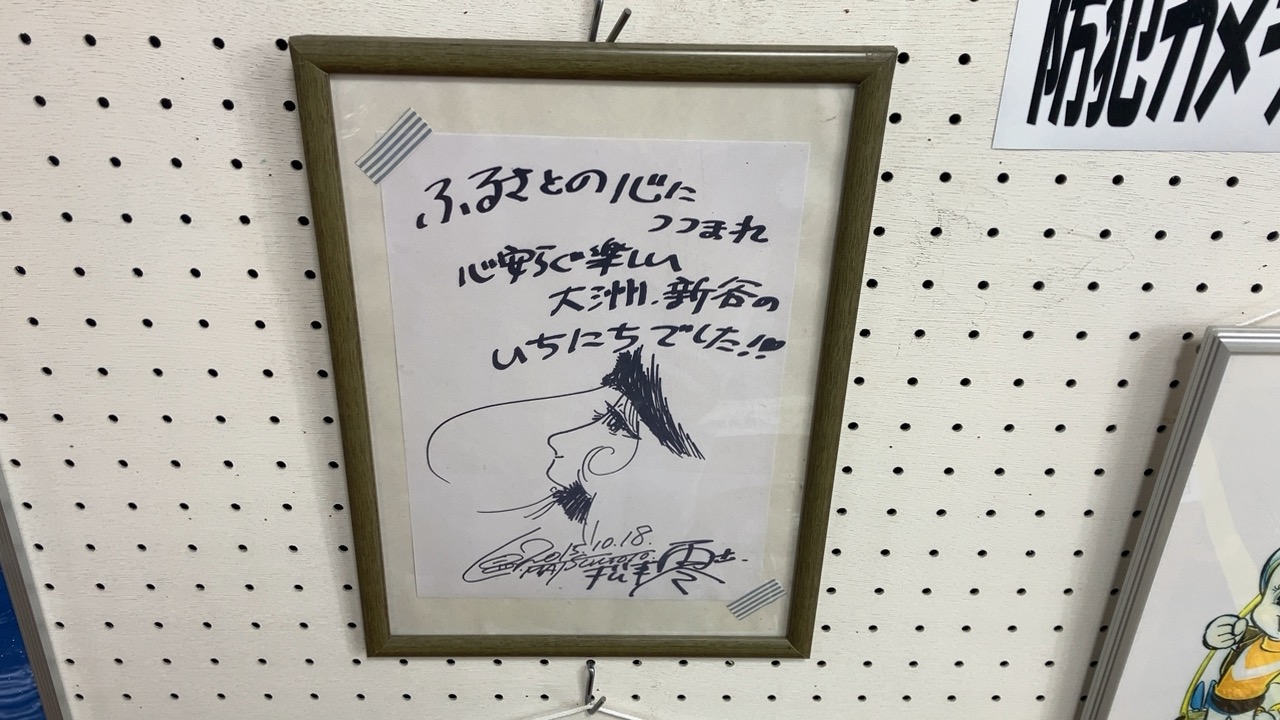 ふるさとの心に
つつまれ
心安らぐ楽しい
大洲.新谷の
いちにちでした!!
2015.10.18.
MATSUMOTO.
松本零士.
防犯カメラ